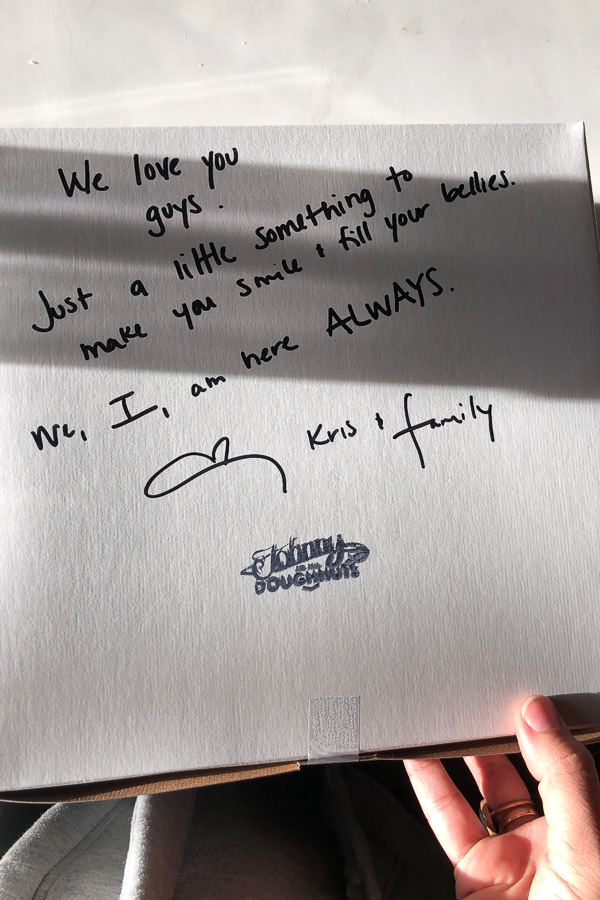 We love you
guys.
Just a little something to
make you smile + fill your bellies.
We, I, am here ALWAYS.
Kris + family
Johnny
DOUGHNUTS